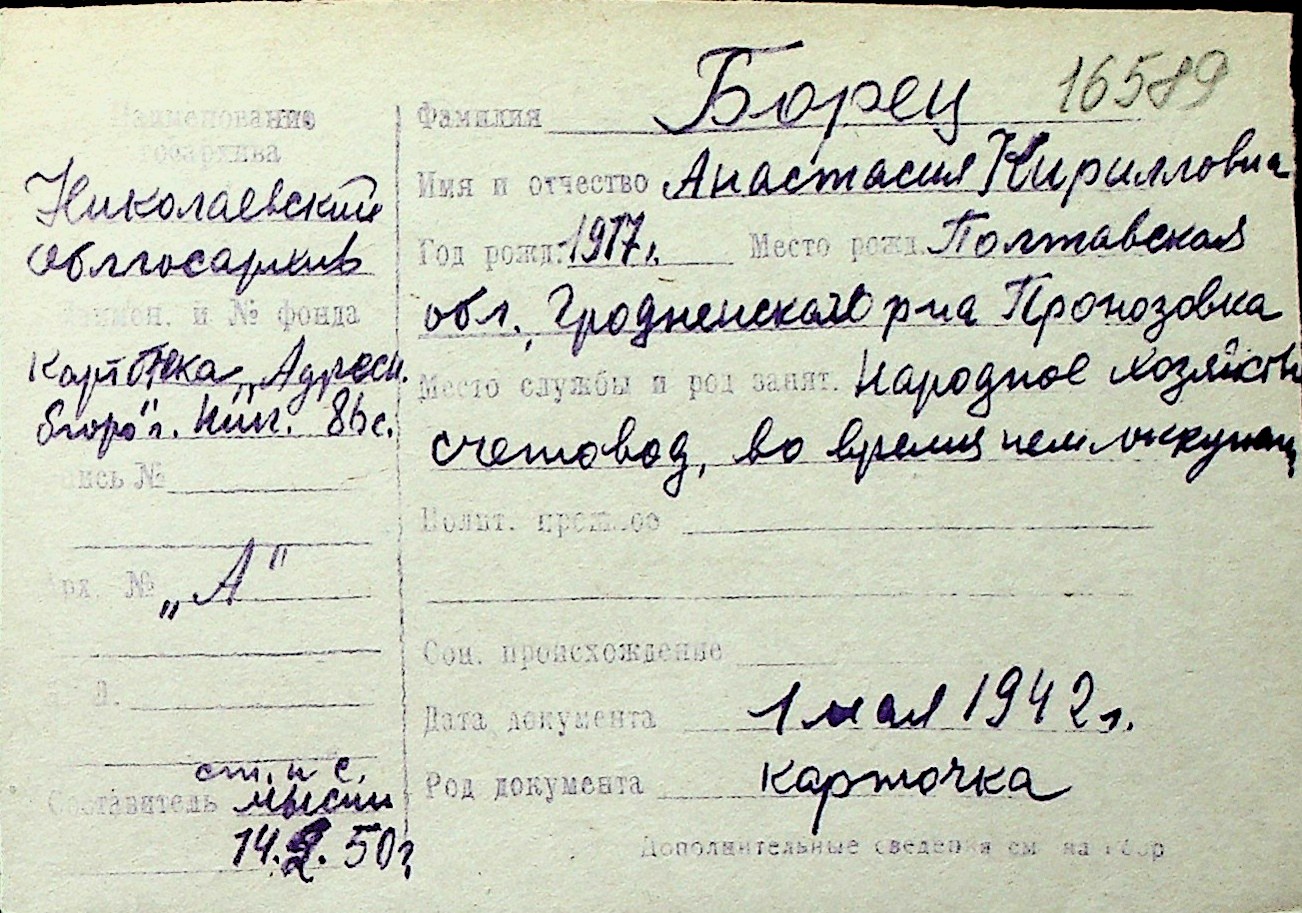 16589
Наименование
госархива
Николаевский
облгосархив
Наимен. и № фонда
Картотека „Адресн.
бюро" г. Ник.
пись №
Арх. № „А"
Л.
ст. н с.
Составитель
14. 2. 50 г
Фамилия Борец
Имя и отчество Анастасия Кирилловна
Год рожд. 1917г. Место рожд. Полтавская
обл., Гродненского р-на Пронозовка
Место службы и род занят. Народное хозяйств
счетовод, во время нем оккупац
Полит. прошлое
Соц. происхождение
Дата документа 1 мая 1942 г.
Род документа карточка
Дополнительные сведения см на обор